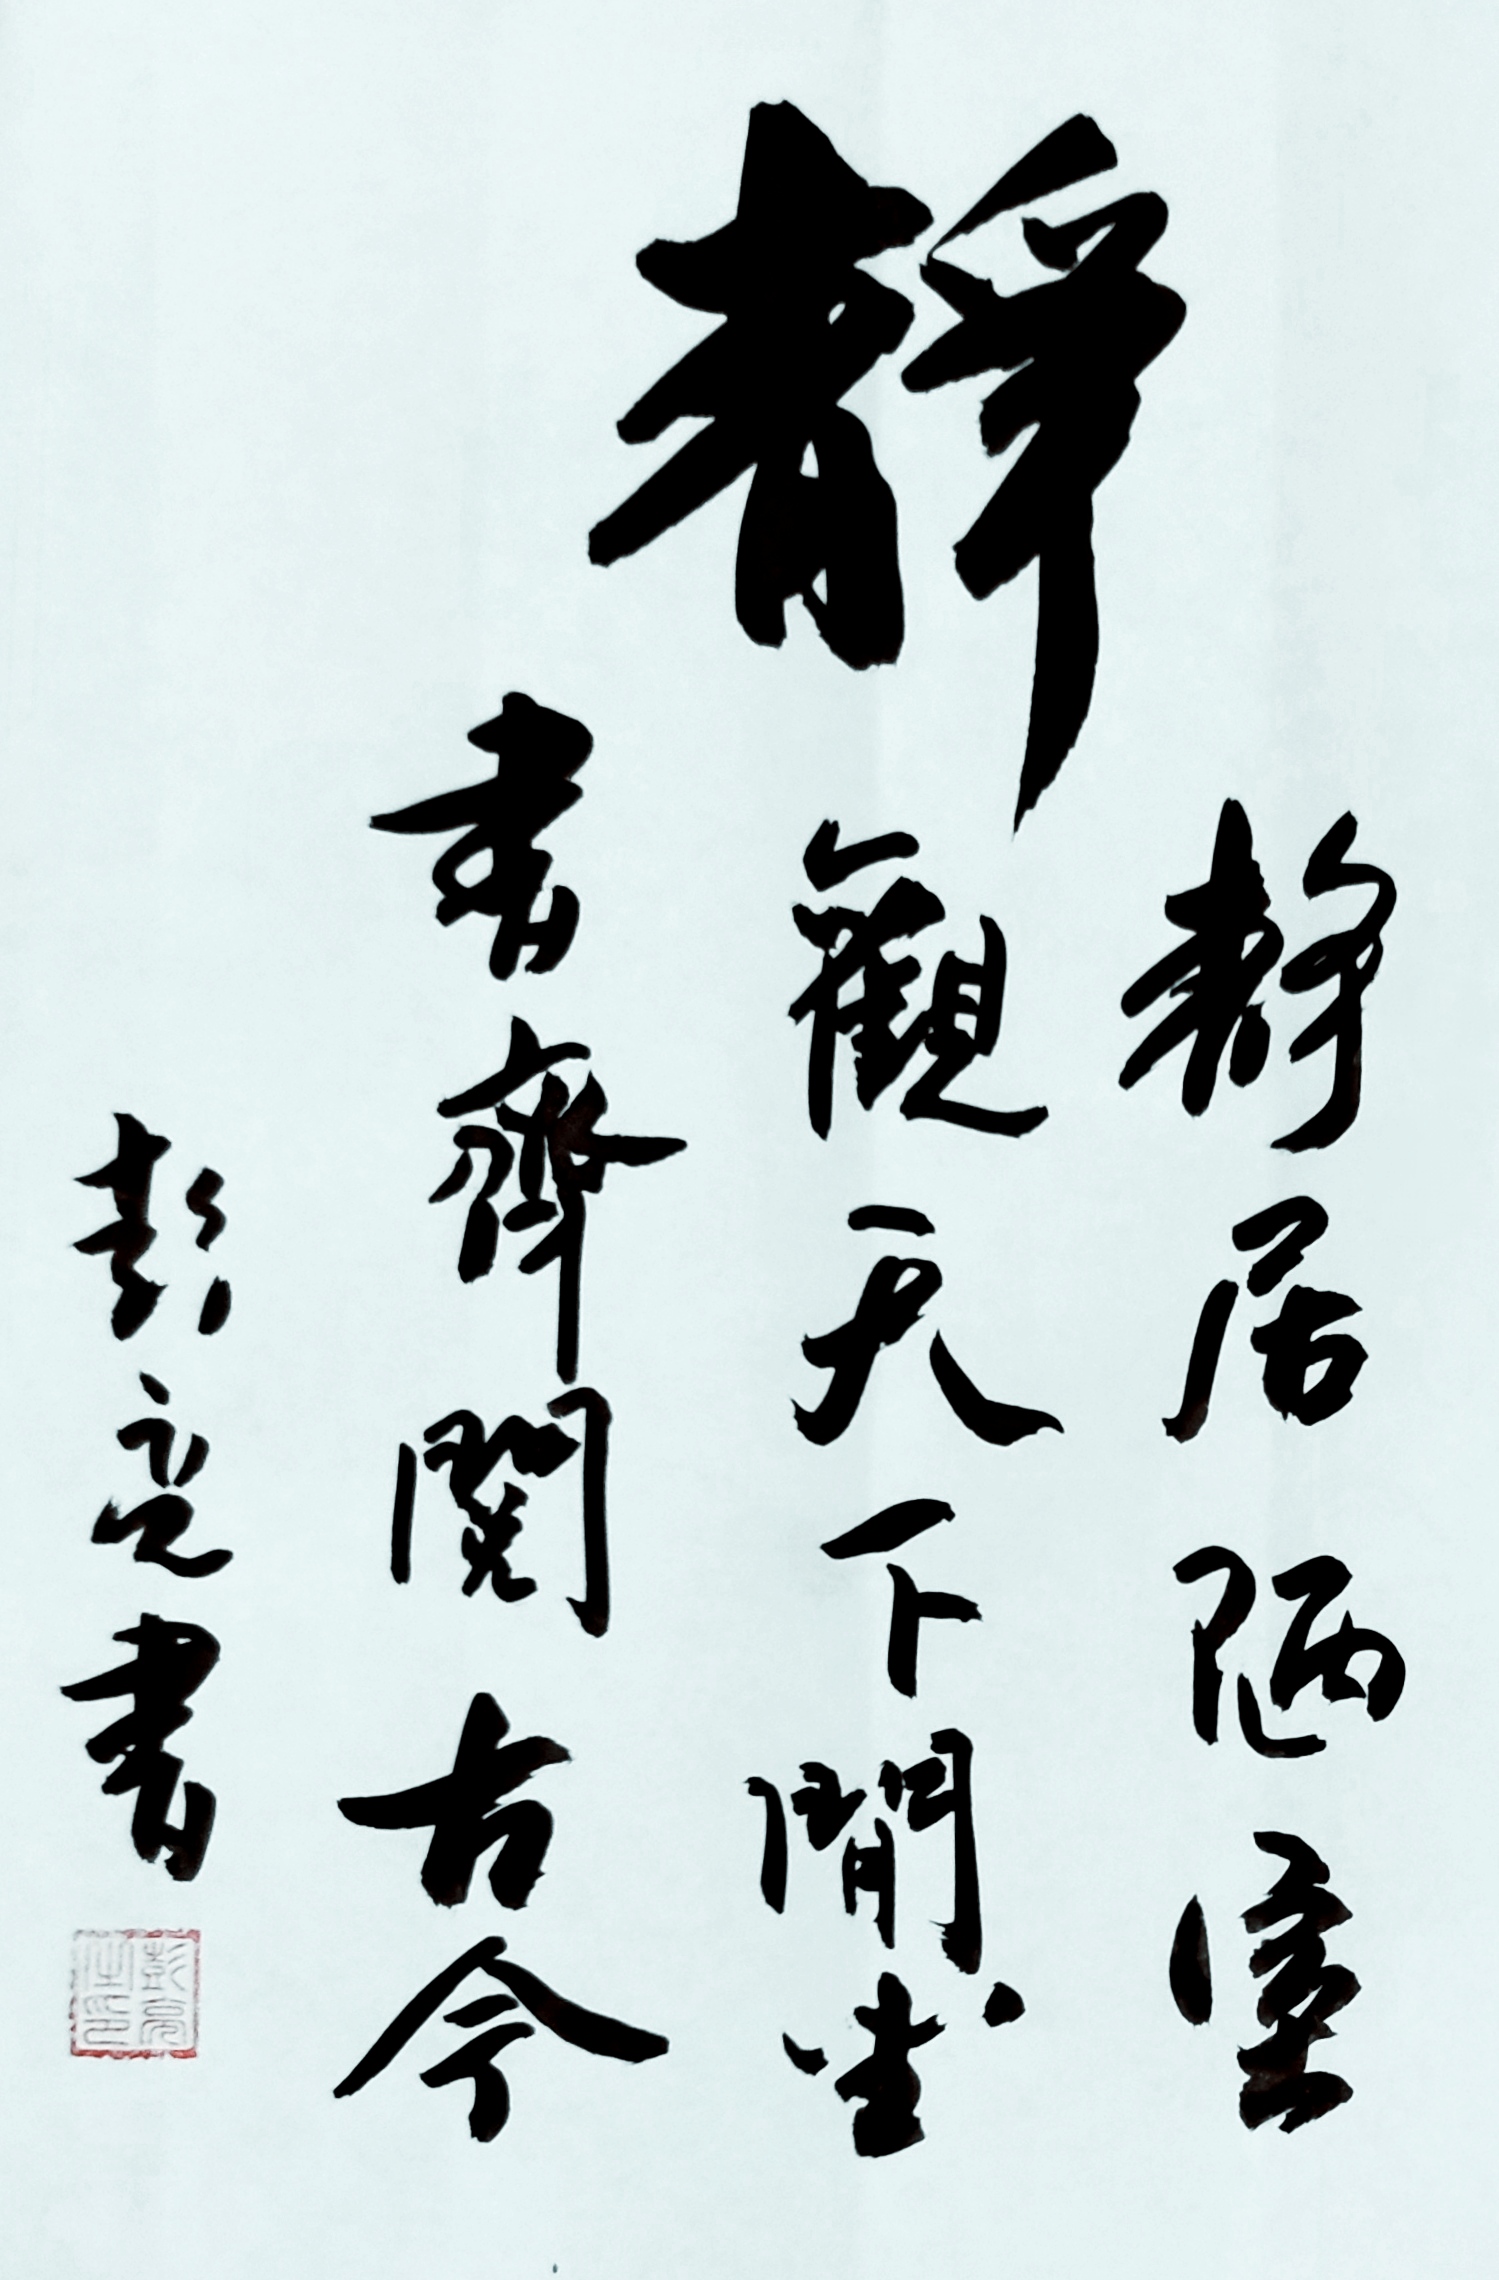 靜
靜居陋室
觀天下閒坐
書齋閱古今
彭亮書
彭亮之印